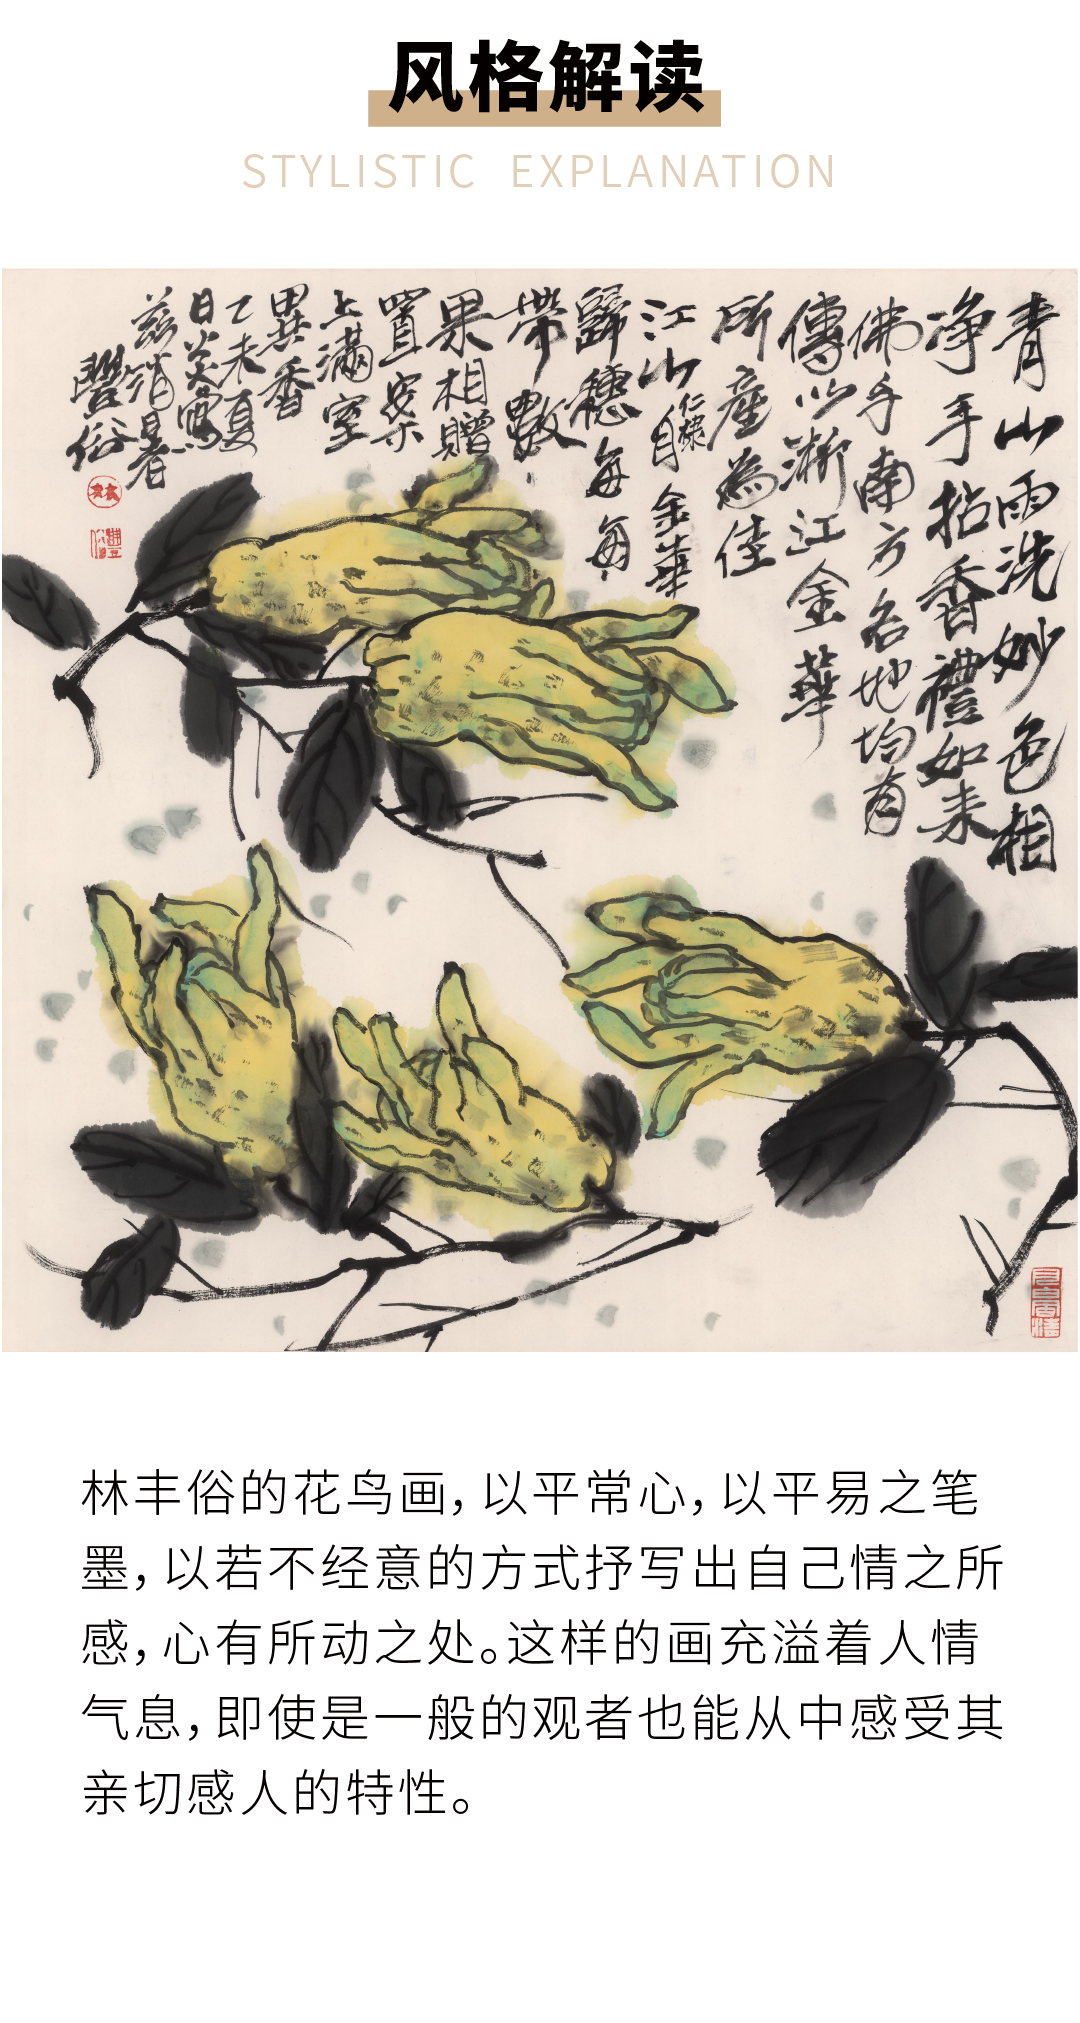 风格解读
STYLISTIC EXPLANATION
青山雨洗妙色相
净手拈香禮如来
佛手南方各地均有
傳以浙江金華
所產為佳
江山仁棣自金華
歸穗每每
帶數
果相贈
置案
上滿室
異香
乙未夏
日炎寫
兹消暑
豐俗
林丰俗的花鸟画，以平常心，以平易之笔
墨，以若不经意的方式抒写出自己情之所
感，心有所动之处。这样的画充溢着人情
气息，即使是一般的观者也能从中感受其
亲切感人的特性。